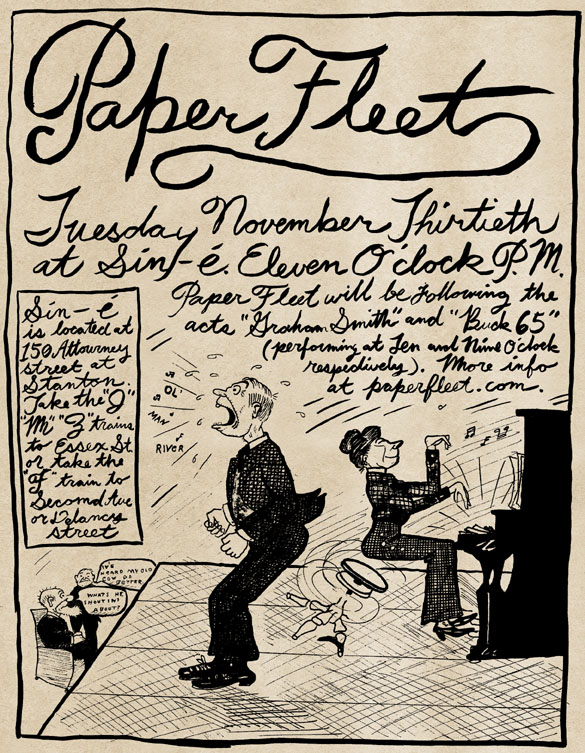 Paper Fleet
Tuesday November Thirtieth
at Sin-é. Eleven O'clock P.M.
Paper Fleet will be following the
acts "Graham Smith" and "Buck 65"
(performing at Ten and Nine O'clock
respectively). More info
at paperfleet.com.
Sin-é
is located at
150 Attourney
street at
Stanton.
Take the "J"
"M" "Z" trains
to Essex St.
or take the
"F" train to
Second Ave
or Delancy
street
OL'
MAN
RIVER
I'VE
HEARD MY OLD
COW DO
BETTER
WHAT'S HE
SHOUTIN'
ABOUT?